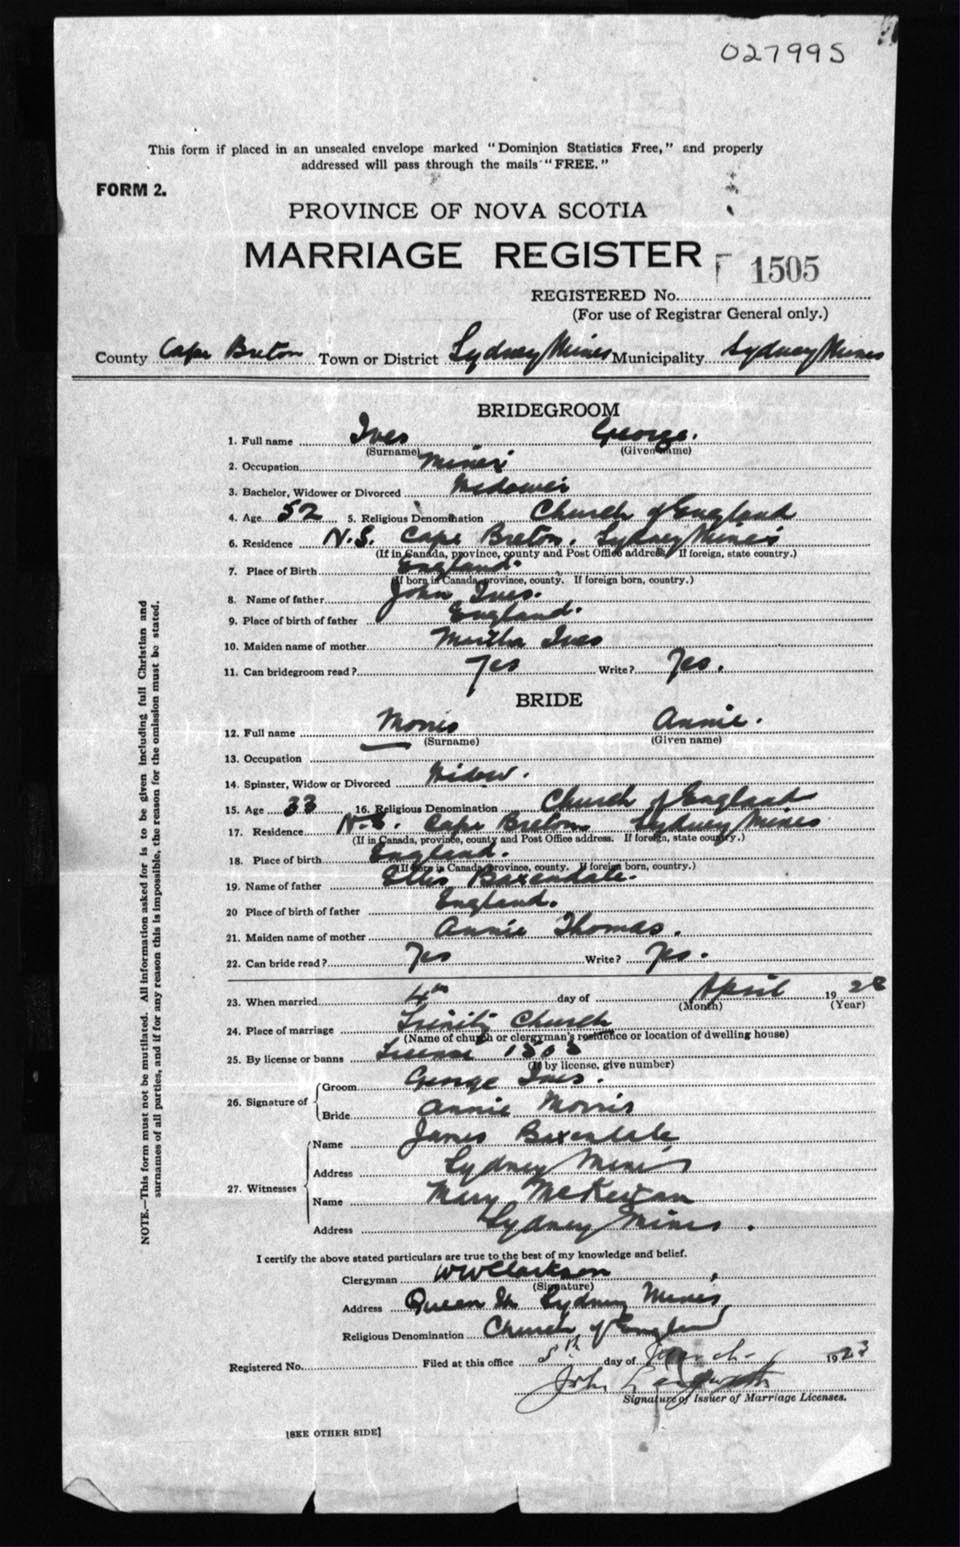 027995
This form if placed in an unsealed envelope marked "Dominion Statistics Free," and properly
addressed will pass through the mails "FREE."
FORM 2.
PROVINCE OF NOVA SCOTIA
MARRIAGE REGISTER F 1505
REGISTERED No.
(For use of Registrar General only.)
County Cape Breton Town or District Sydney Mines Municipality Sydney Mines
BRIDEGROOM
1. Full name Ives George.
(Surname) (Given name)
2. Occupation Miner
3. Bachelor, Widower or Divorced Widower
4. Age 52 5. Religious Denomination Church of England
6. Residence N.S. Cape Breton, Sydney Mines
(If in Canada, province, county and Post Office address. If foreign, state country.)
7. Place of Birth England.
(If born in Canada, province, county. If foreign born, country.)
8. Name of father John Ives.
9. Place of birth of father England.
10. Maiden name of mother Martha Ives
11. Can bridegroom read? Yes Write? Yes.
BRIDE
12. Full name Morris Annie.
(Surname) (Given name)
13. Occupation
14. Spinster, Widow or Divorced Widow.
15. Age 33 16. Religious Denomination Church of England
17. Residence N.S. Cape Breton Sydney Mines
(If in Canada, province, county and Post Office address. If foreign, state country.)
18. Place of birth England.
(If born in Canada, province, county. If foreign born, country.)
19. Name of father Ellis Baxendale.
20 Place of birth of father England.
21. Maiden name of mother Annie Thomas.
22. Can bride read? Yes Write? Yes.
23. When married 4th day of April 19
(Month) (Year)
24. Place of marriage Trinity Church
(Name of church or clergyman's residence or location of dwelling house)
25. By license or banns License
(If by license, give number)
26. Signature of Groom George Ives.
Bride Annie Morris
27. Witnesses Name James Baxendale
Address Sydney Mines
Name Mary McKeigan
Address Sydney Mines.
I certify the above stated particulars are true to the best of my knowledge and belief.
Clergyman WW Clarkson
(Signature)
Address Queen St Sydney Mines
Religious Denomination Church of England
Registered No. Filed at this office 5th day of March 1923
John
Signature of Issuer of Marriage Licenses.
[SEE OTHER SIDE]
NOTE.—This form must not be mutilated. All information asked for is to be given including full Christian and
surnames of all parties, and if for any reason this is impossible, the reason for the omission must be stated.